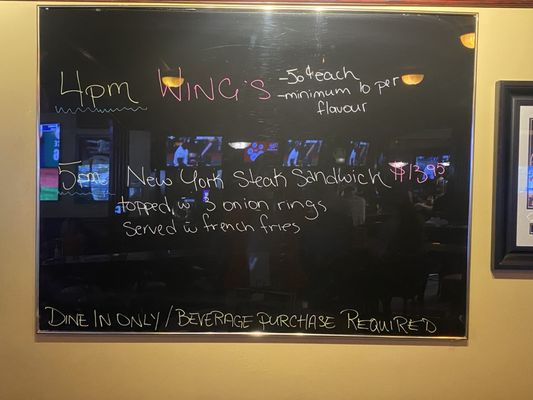 4pm WING'S -50¢ each
-minimum 10 per
flavour
5pm New York Steak Sandwich $13.95
topped w 3 onion rings
Served w french fries
DINE IN ONLY / BEVERAGE PURCHASE REQUIRED